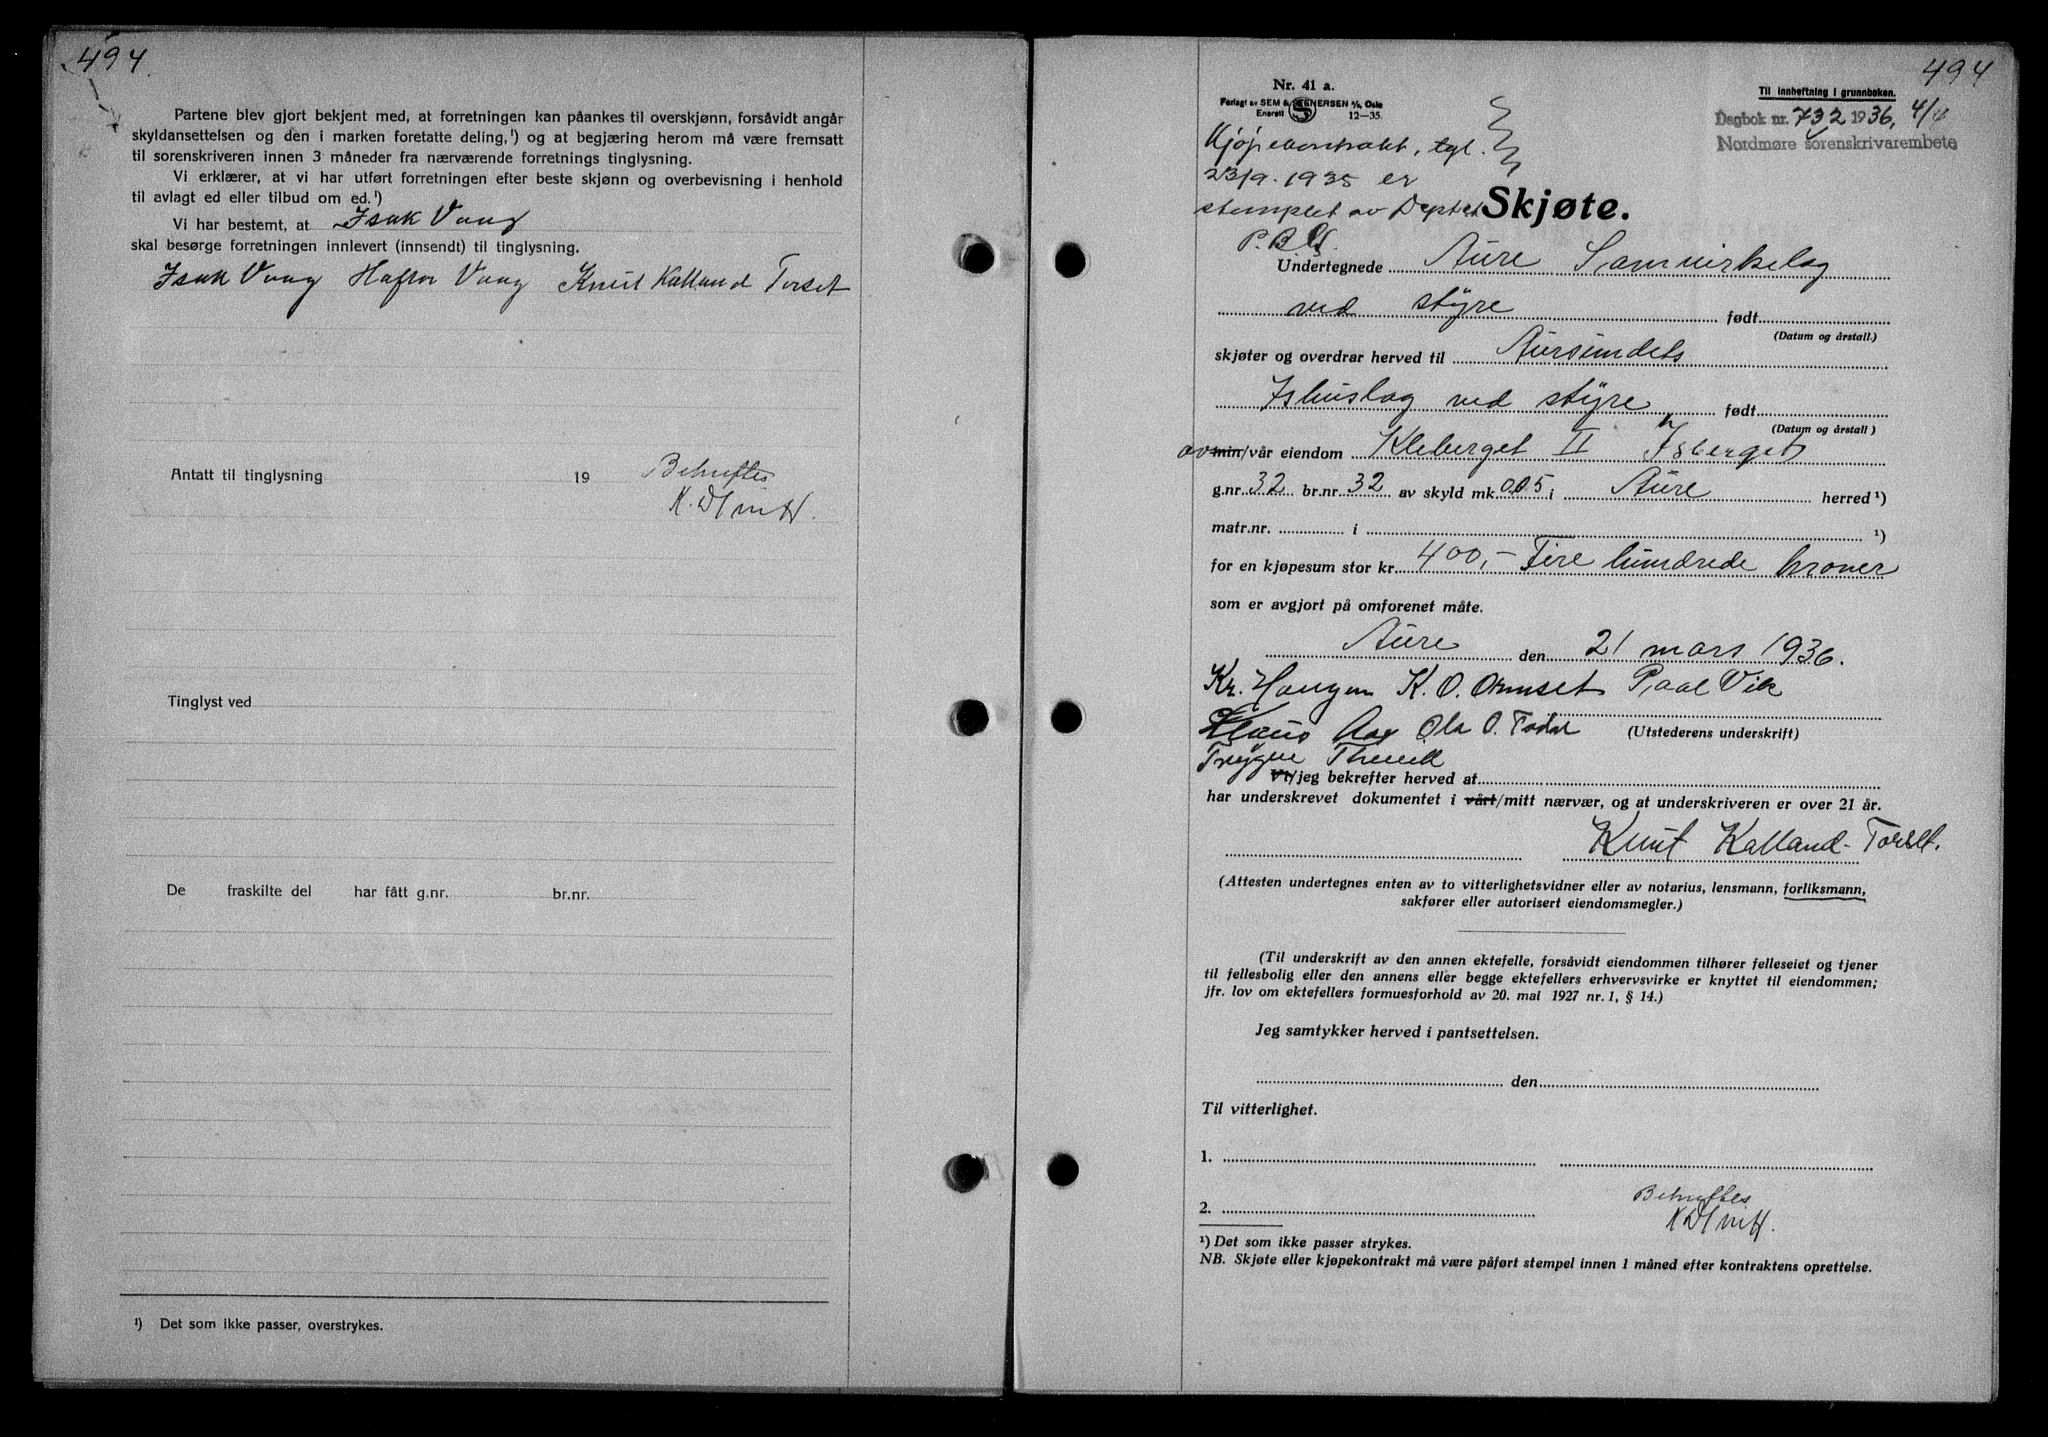 494
Partene blev gjort bekjent med, at forretningen kan påankes til overskjønn, forsåvidt angår
skyldansettelsen og den i marken foretatte deling,¹) og at begjæring herom må være fremsatt
til sorenskriveren innen 3 måneder fra nærværende forretnings tinglysning.
Vi erklærer, at vi har utført forretningen efter beste skjønn og overbevisning i henhold
til avlagt ed eller tilbud om ed.¹)
Vi har bestemt, at Isak Vaag
skal besørge forretningen innlevert (innsendt) til tinglysning.
Isak Vaag Haftor Vaag Knut Kalland Torset
Antatt til tinglysning 19 Bekreftes
Tinglyst ved
De fraskilte del har fått g.nr. br.nr.
¹) Det som ikke passer, overstrykes.
494
Nr. 41 a.
Forlagt av SEM & STENERSEN A/S, Oslo
Enerett 12—35.
Til innheftning i grunnboken.
Dagbok nr. 732 1936, 4/4
Nordmøre sorenskrivarembete
Kjøpekontrakt, tgl.
23/9. 1935 er
stemplet av Deptet
Skjøte.
Undertegnede Aure Samvirkelag
ved styre født
(Datum og årstall.)
skjøter og overdrar herved til Aursundets
Ishuslag ved styre født
(Datum og årstall)
av min/vår eiendom Kleberget II Isberget
g.nr. 32 br.nr. 32 av skyld mk. 0.05 i Aure herred ¹)
matr.nr. i ¹)
for en kjøpesum stor kr. 400,- Fire hundrede kroner
som er avgjort på omforenet måte.
Aure den 21 mars 1936.
Kr. Haugen K. O. Ormset Paal Vik
Klaus Aa Ola O. Todal (Utstederens underskrift)
Trygve
Vi/jeg bekrefter herved at
har underskrevet dokumentet i vårt/mitt nærvær, og at underskriveren er over 21 år.
Knut Kalland-Torset.
(Attesten undertegnes enten av to vitterlighetsvidner eller av notarius, lensmann, forliksmann,
sakfører eller autorisert eiendomsmegler.)
(Til underskrift av den annen ektefelle, forsåvidt eiendommen tilhører felleseiet og tjener
til fellesbolig eller den annens eller begge ektefellers erhvervsvirke er knyttet til eiendommen;
jfr. lov om ektefellers formuesforhold av 20. mai 1927 nr. 1, § 14.)
Jeg samtykker herved i pantsettelsen.
den
Til vitterlighet.
1.
Bekreftes
2.
¹) Det som ikke passer strykes.
NB. Skjøte eller kjøpekontrakt må være påført stempel innen 1 måned efter kontraktens oprettelse.